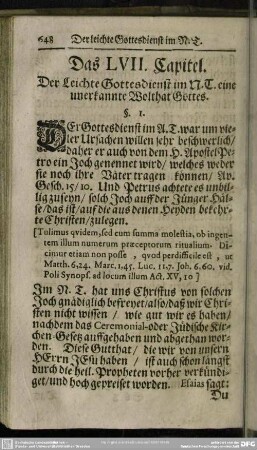 648 Der leichte Gottesdienst im N. T.
Das LVII. Capitel.
Der Leichte Gottesdienst im N. T. eine
unerkannte Wolthat Gottes.
§. 1.
DEr Gottesdienst im A. T. war um vie-
ler Ursachen willen sehr beschwerlich/
daher er auch von dem H. Apostel Pe-
tro ein Joch genennet wird/ welches weder
sie noch ihre Väter tragen können/ Ap.
Gesch. 15/ 10. Und Petrus achtete es unbil-
lig zu seyn/ solch Joch auff der Jünger Häl-
se/ das ist/ auff die aus denen Heyden bekehr-
te Christen/ zulegen.
[Tolimus qvidem, sed cum summa molestia, ob ingen-
tem illum numerum præceptorum ritualium. Di-
cimur etiam non posse, qvod perdifficile est, ut
Matth. 6,24. Marc. 1,45. Luc. 11,7. Joh. 6.60. vid.
Poli Synopf. ad locum illum Act. XV, 10]
Im N. T. hat uns Christus von solchen
Joch gnädiglich befreyet/ also/ daß wir Chri-
sten nicht wissen/ wie gut wir es haben/
nachdem das Ceremonial- oder Jüdische Kir-
chen-Gesetz auffgehoben und abgethan wor-
den. Diese Gutthat/ die wir von unsern
HErrn JEsu haben/ ist auch schon längst
durch die heil. Propheten vorher verkündi-
get/ und hoch gepreiset worden. Esaias sagt:
Du